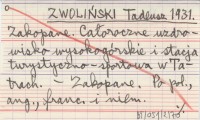 ZWOLIŃSKI Tadeusz 1931.
Zakopane. Całoroczne uzdro-
wisko wysokogórskie i stacja
turystyczno-sportowa w Ta-
trach. – Zakopane. Po pol.,
ang., franc. i niem.